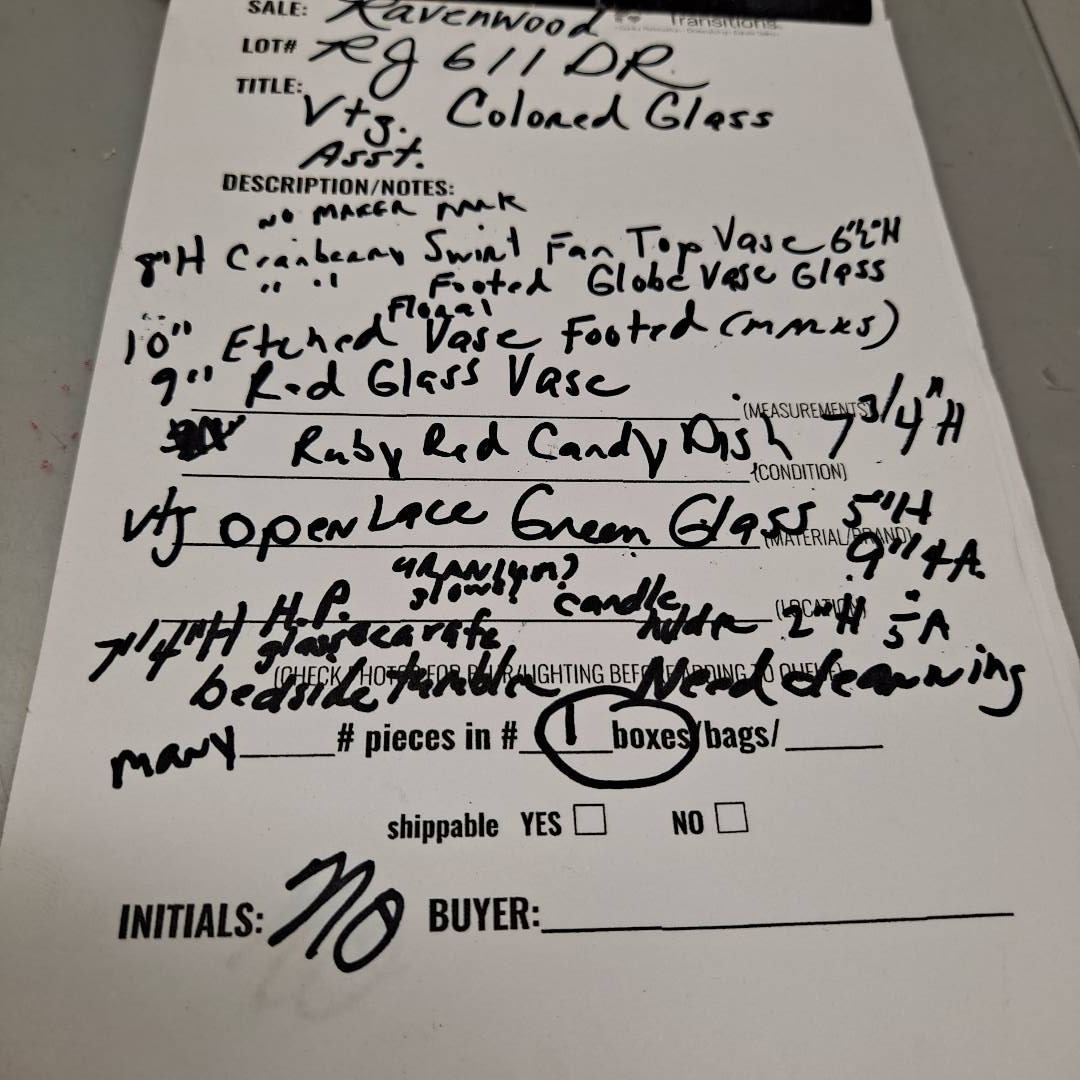 SALE: Ravenwood
Transitions
LOT# RJ 611 DR
TITLE: Vtg. Colored Glass
Asst.
DESCRIPTION/NOTES:
NO MAKER MARK
8"H Cranberry Swirl Fan Top Vase 6½"H
" " Footed Globe Vase Glass
Floral
10" Etched Vase Footed (marks)
9" Red Glass Vase
(MEASUREMENTS)
Ruby Red Candy Dish 7 3/4"H
(CONDITION)
Vtg open Lace Green Glass 5"H
(MATERIAL/BRAND)
9"4A
URANIUM?
glows?
7 1/4"H H.P. candle
(LOCATION)
glass carafe holder 2"H 5"A
(CHECK PHOTOS FOR BLUR/LIGHTING BEFORE ADDING TO QUEUE)
bedside tumbler Need cleanning
many # pieces in # 1 boxes/bags/
shippable YES NO
INITIALS: NO BUYER: